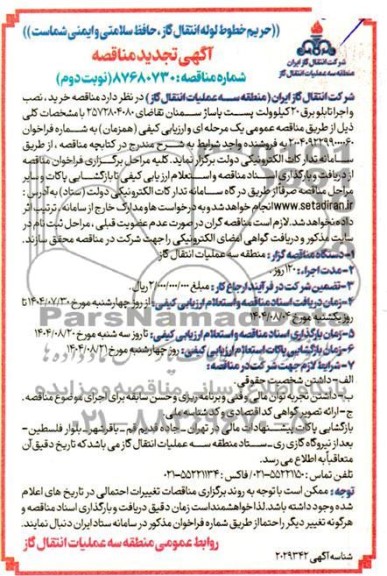 ((حریم خطوط لوله انتقال گاز، حافظ سلامتی و ایمنی شماست))
آگهی تجدید مناقصه
شماره مناقصه: ۸۷۶۸۰۷۳۰ (نوبت دوم)
شرکت انتقال گاز ایران
منطقه سه عملیات انتقال گاز
شرکت انتقال گاز ایران (منطقه سه عملیات انتقال گاز) در نظر دارد مناقصه خرید، نصب
و اجرا تابلو برق ۲۰ کیلوولت پست پاساژ سمنان تقاضای ۲۵۷۲۸۴۰۸۰ با مشخصات کلی
ذیل از طریق مناقصه عمومی یک مرحله ای و ارزیابی کیفی (همزمان) به شماره فراخوان
به فروشنده واجد شرایط به شرح مندرج در کتابچه مناقصه، از طریق
سامانه تدارکات الکترونیکی دولت برگزار نماید. کلیه مراحل برگزاری فراخوان مناقصه
از دریافت و بارگذاری اسناد مناقصه و استعلام ارزیابی کیفی تا بازگشایی پاکات و سایر
مراحل مناقصه صرفا از طریق درگاه سامانه تدارکات الکترونیکی دولت (ستاد) به آدرس:
www.setadiran.ir انجام خواهد شد و به درخواست ها و مدارک خارج از سامانه، ترتیب اثر
داده نخواهد شد. لازم است مناقصه گران در صورت عدم عضویت قبلی، مراحل ثبت نام در
سایت مذکور و دریافت گواهی امضای الکترونیکی را جهت شرکت در مناقصه محقق سازند.
۱- دستگاه مناقصه گزار: منطقه سه عملیات انتقال گاز
۲- مدت اجراء: ۱۲۰ روز
۳- تضمین شرکت در فرآیند ارجاع کار: مبلغ ۲/۰۰۰/۰۰۰/۰۰۰ ریال.
۴- زمان دریافت اسناد مناقصه و استعلام ارزیابی کیفی: از روز چهارشنبه مورخ ۱۴۰۴/۰۷/۳۰ تا
روز یکشنبه مورخ ۱۴۰۴/۰۸/۰۴
۵- زمان بارگذاری اسناد مناقصه و استعلام ارزیابی کیفی: تا روز سه شنبه مورخ ۱۴۰۴/۰۸/۲۰
۶- زمان بازگشایی پاکات استعلام ارزیابی کیفی: روز چهارشنبه مورخ ۱۴۰۴/۰۸/۲۱
۷- شرایط لازم جهت شرکت در مناقصه:
الف- داشتن شخصیت حقوقی
ب- داشتن تجربه، توان مالی و فنی و برنامه ریزی و حسن سابقه برای اجرای موضوع مناقصه.
ج- ارائه تصویر گواهی کد اقتصادی و کد شناسه ملی
بازگشایی پاکات پیشنهادهای مالی در تهران- جاده قدیم قم- باقرشهر- بلوار فلسطین-
بعد از نیروگاه گازی ری- ستاد منطقه سه عملیات انتقال گاز می باشد که تاریخ دقیق آن
متعاقباً به اطلاع می رسد.
تلفن تماس: ۵۵۲۲۱۱۵۰-۰۲۱ / فاکس: ۵۵۲۲۱۱۳۴-۰۲۱
توجه: ممکن است با توجه به روند برگزاری مناقصات تغییرات احتمالی در تاریخ های اعلام
شده وجود داشته باشد. لذا خواهشمند است زمان دقیق دریافت و بارگذاری اسناد مناقصه و
هرگونه تغییر دیگر را حتما از طریق شماره فراخوان مذکور در سامانه ستاد ایران دنبال نمایند.
روابط عمومی منطقه سه عملیات انتقال گاز
شناسه آگهی ۲۰۲۹۳۴۲
ParsNamad